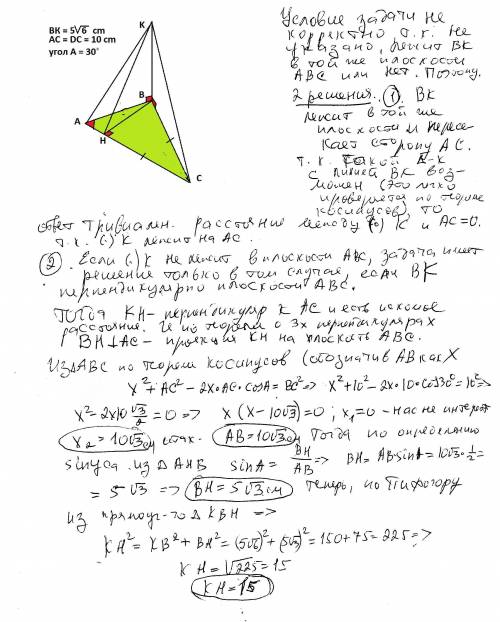 BK = 5√6 cm
AC = DC = 10 cm
угол A = 30°
K
B
A
H
C
Условие задачи не
корректно т.к. не
указано, лежит BK
в той же плоскости
ABC или нет. Поэтому.
2 решения. ① BK
лежит в той же
плоскости и пересе-
кает сторону AC.
т.к. такой Δ-к
с линией BK воз-
можен (это легко
проверяется по теореме
косинусов), то
ответ тривиален. расстояние между (·) K и AC=0.
т.к. (·) K лежит на AC.
② Если (·) K не лежит в плоскости ABC, задача имеет
решение только в том случае, если BK
перпендикулярно плоскости ABC.
Тогда KH – перпендикуляр к AC и есть искомое
расстояние. И по теореме о 3х перпендикулярах
BH⊥AC – проекция KH на плоскость ABC.
Из ΔABC по теореме косинусов (обозначив AB как X
x² + AC² - 2x·AC·cosA = BC² => x² + 10² - 2x·10·cos30° = 10² =>
x² - 2x10 √3/2 = 0 => x(x - 10√3) = 0; x₁ = 0 - нас не интерес
x₂ = 10√3 см итак. AB = 10√3 см Тогда по определению
sinуса из ΔAHB sinA = BH/AB => BH = AB sinA = 10√3·1/2 =
= 5√3 => BH = 5√3 см теперь, по Пифагору
из прямоуг-го Δ KBH =>
KH² = KB² + BH² = (5√6)² + (5√3)² = 150 + 75 = 225 =>
KH = √225 = 15
KH = 15